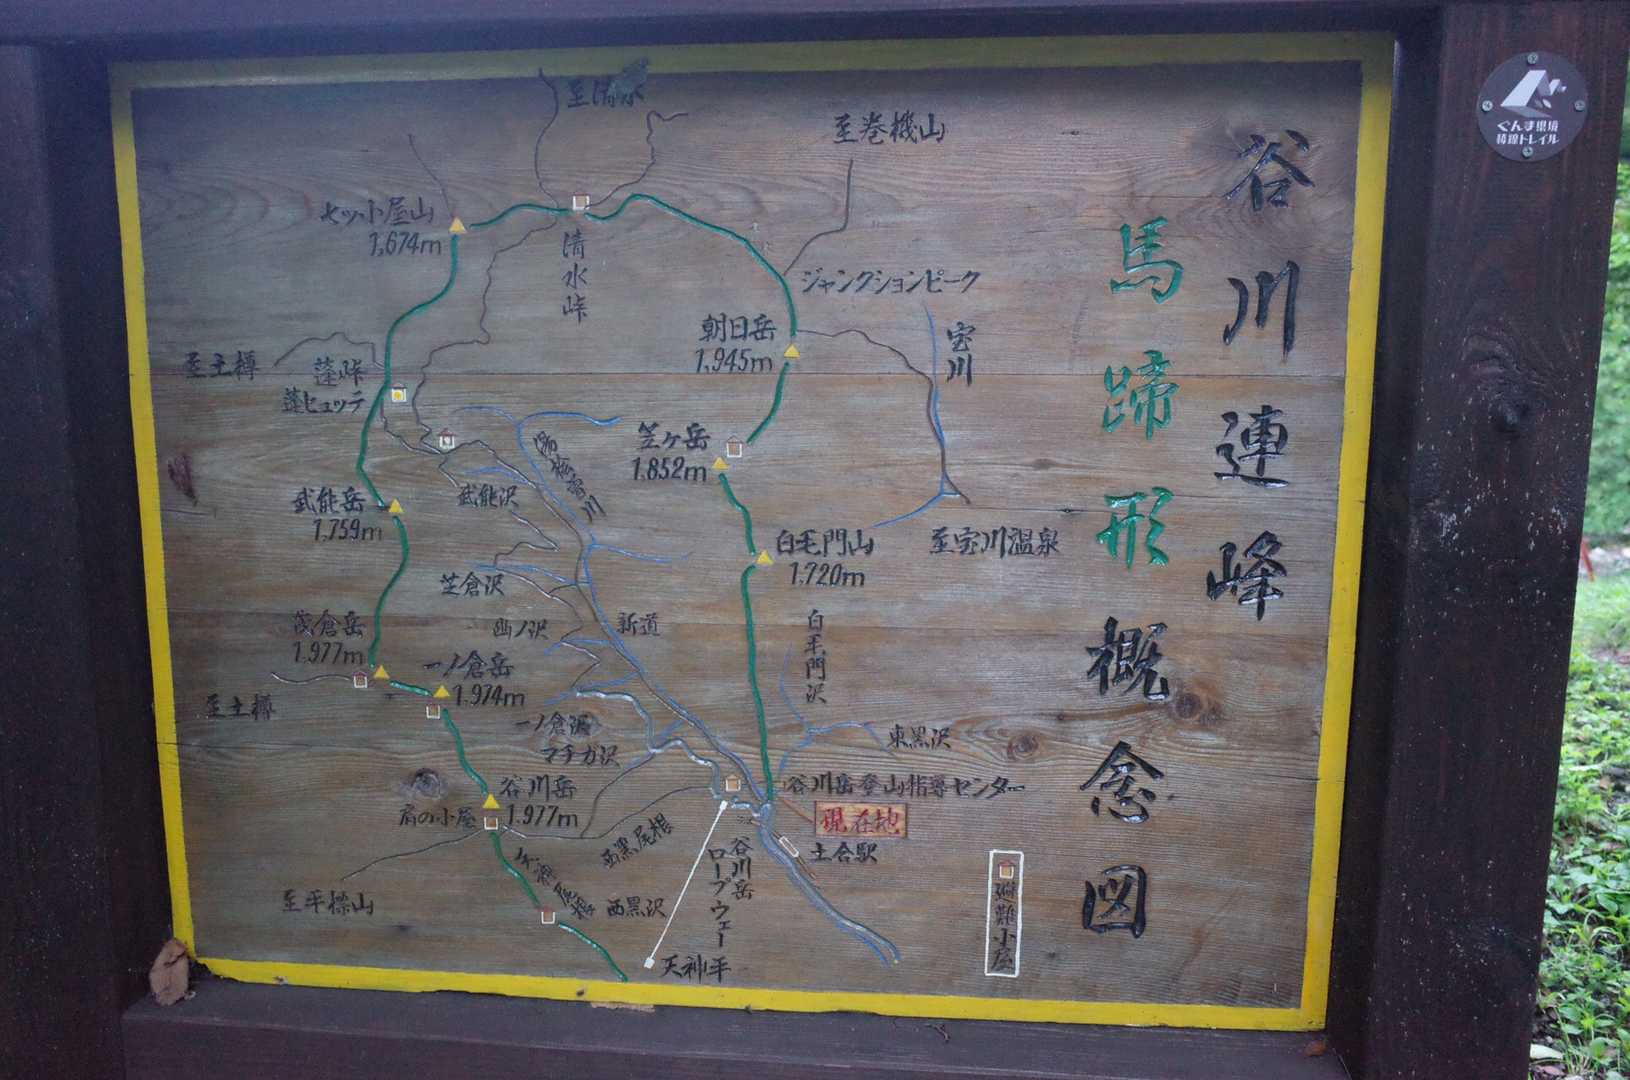 谷川連峰
馬蹄形概念図
至清水
至巻機山
七ッ小屋山
1,674m
清水峠
ジャンクションピーク
朝日岳
1,945m
宝川
至土樽
蓬峠
蓬ヒュッテ
笠ヶ岳
1,852m
湯桧曽川
武能沢
武能岳
1,759m
白毛門山
1,720m
至宝川温泉
芝倉沢
茂倉岳
1,977m
幽ノ沢
新道
白毛門沢
一ノ倉岳
1,974m
至土樽
一ノ倉沢
マチガ沢
東黒沢
谷川岳
1,977m
肩の小屋
谷川岳登山指導センター
現在地
土合駅
西黒尾根
谷川岳
ロープウェー
天神尾根
西黒沢
至平標山
天神平
避難小屋
ぐんま県境
稜線トレイル